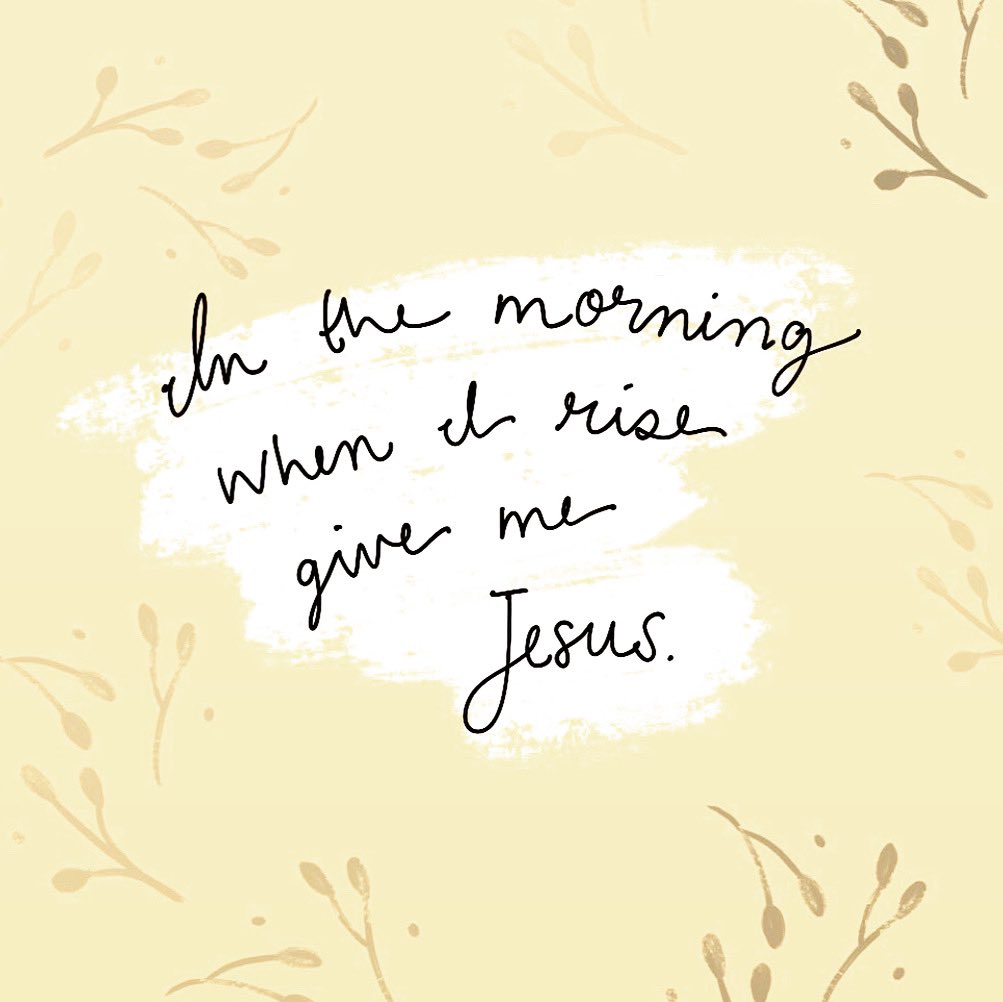 In the morning
when I rise
give me
Jesus.